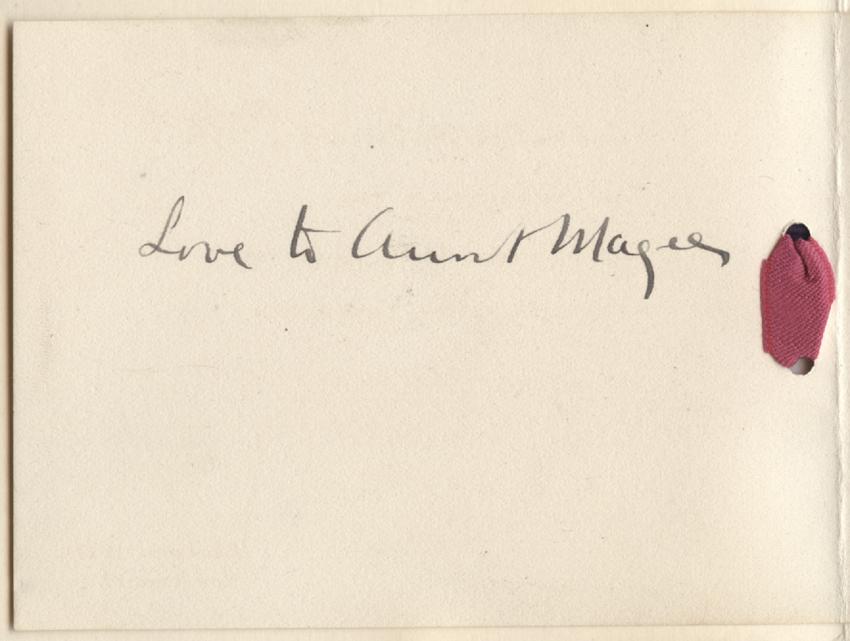 Love to Aunt Magee